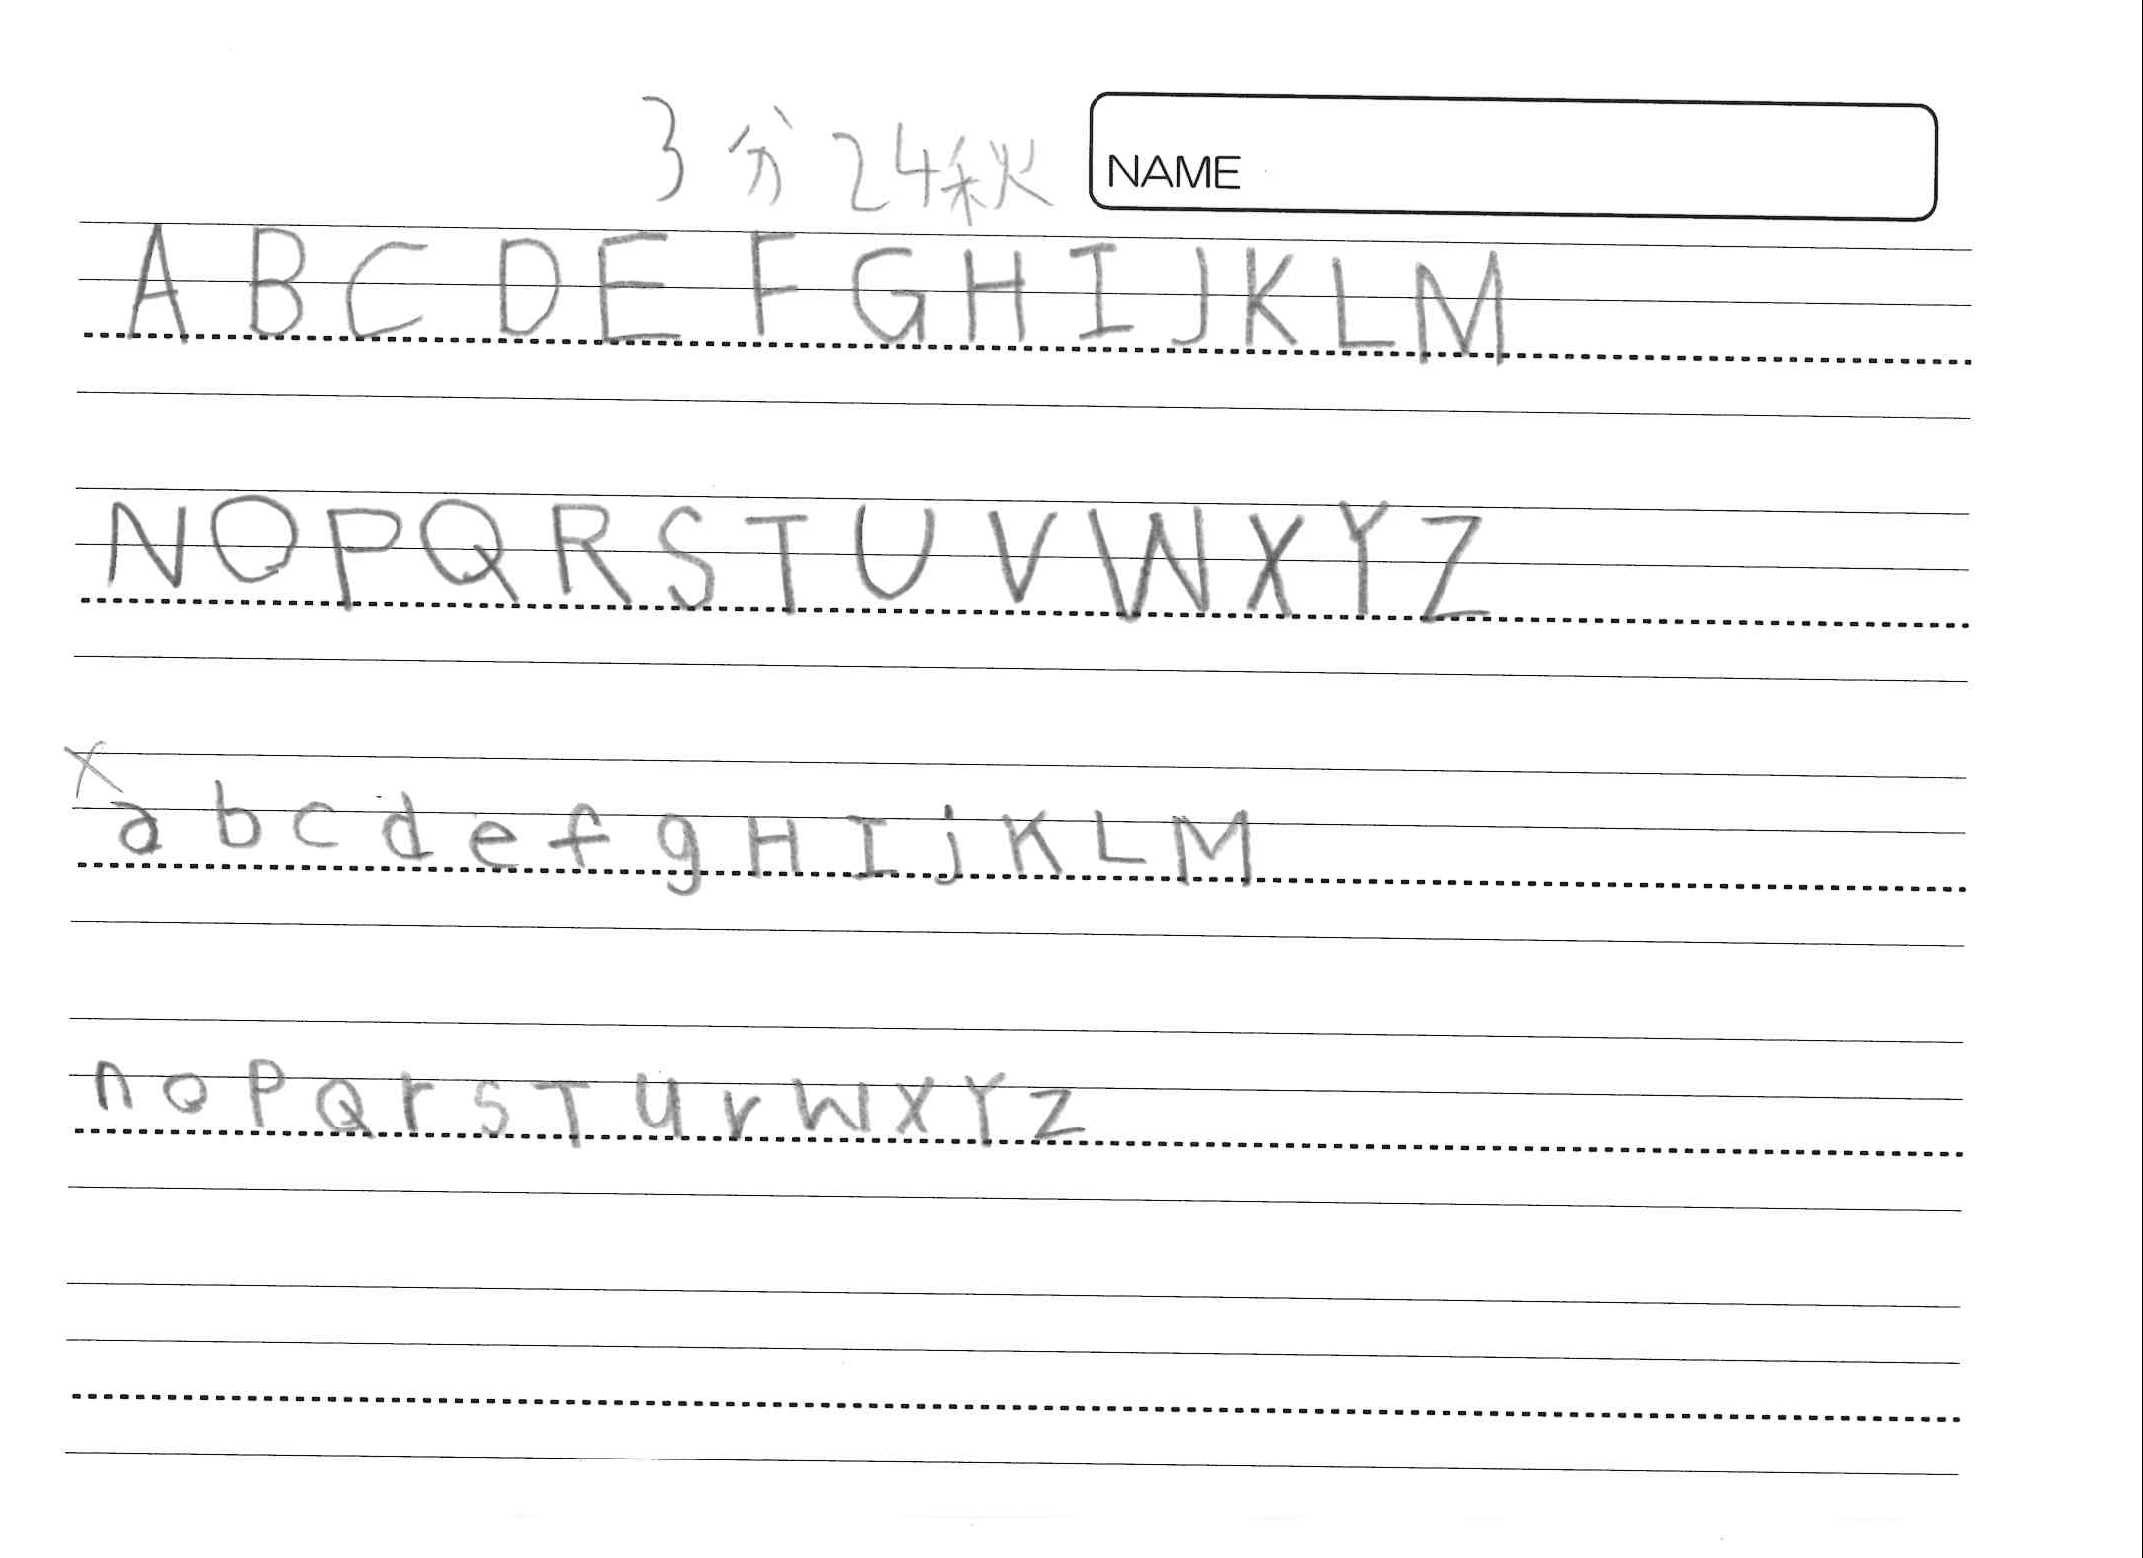 3分24秋
NAME
A B C D E F G H I J K L M
N O P Q R S T U V W X Y Z
x
a b c d e f g H I j K L M
n o P Q r S T u r W X Y Z